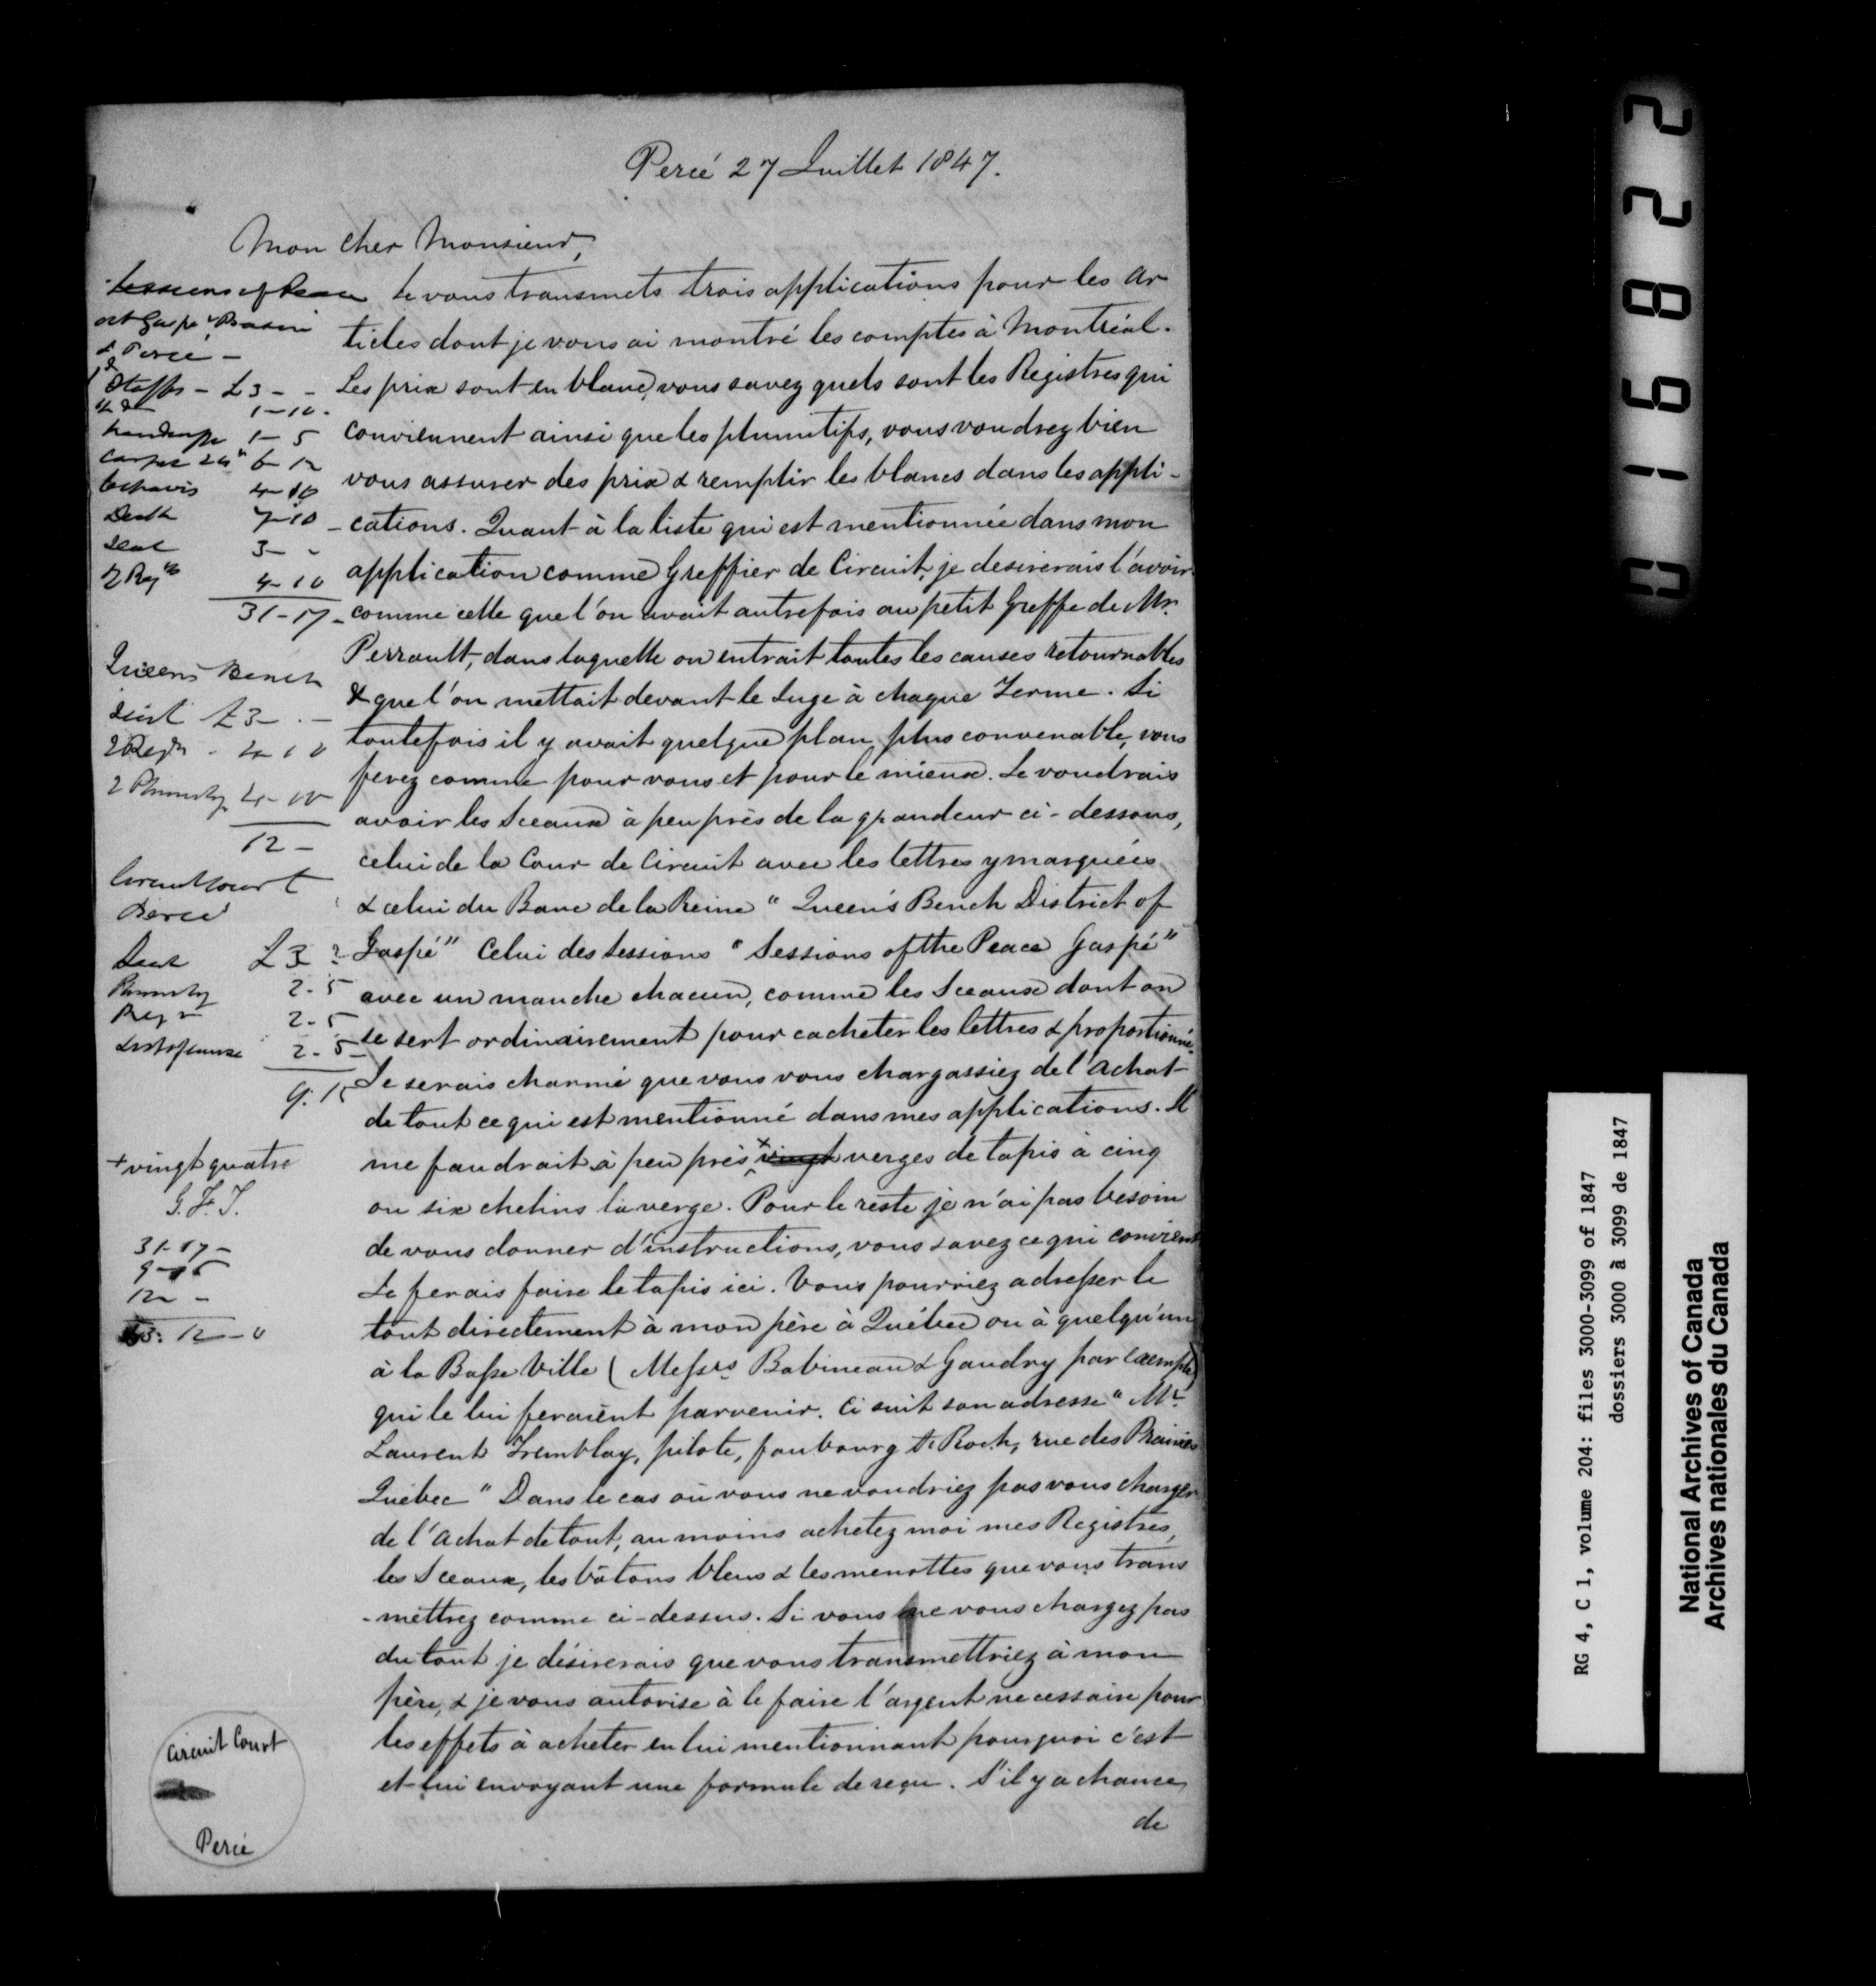 Percé 27 Juillet 1847.
Mon cher Monsieur,
Je vous transmets trois applications pour les ar
ticles dont je vous ai montré les comptes à Montréal.
Les prix sont en blanc, vous savez quels sont les Registres qui
conviennent ainsi que les plumitifs, vous voudrez bien
vous assurer des prix & remplir les blancs dans les appli-
cations. Quant à la liste qui est mentionnée dans mon
application comme Greffier de Circuit, je desirerais l'avoir
comme celle que l'on avait autrefois au petit Greffe de Mr.
Perrault, dans laquelle on entrait toutes les causes retournables
& que l'on mettait devant le Juge à chaque Terme. Si
toutefois il y avait quelque plan plus convenable, vous
ferez comme pour vous et pour le mieux. Je voudrais
avoir les Sceaux à peu près de la grandeur ci-dessous,
celui de la Cour de Circuit avec les lettres y marquées
& celui du Banc de la Reine "Queen's Bench District of
Gaspé" Celui des Sessions "Sessions of the Peace Gaspé"
avec un manche chacun, comme les Sceaux dont on
se sert ordinairement pour cacheter les lettres & proportionné.
Je serais charmé que vous vous chargassiez de l'achat
de tout ce qui est mentionné dans mes applications. Il
me faudrait à peu près + vingt verges de tapis à cinq
ou six chelins la verge. Pour le reste je n'ai pas besoin
de vous donner d'instructions, vous savez ce qui convient
Je ferais faire le tapis ici. Vous pourriez adresser le
tout directement à mon père à Québec ou à quelqu'un
à la Basse Ville (Messrs Babineau & Gaudry par exemple)
qui le lui feraient parvenir. Ci suit son adresse "Mr.
Laurent Tremblay, pilote, faubourg St Roch, rue des Prairies
Québec" Dans le cas où vous ne voudriez pas vous charger
de l'achat de tout, au moins achetez moi mes Registres,
les Sceaux, les bâtons bleus & les menottes que vous trans
-mettrez comme ci-dessus. Si vous ne vous chargez pas
du tout je désirerais que vous transmettriez à mon
père, & je vous autorise à le faire l'argent necessaire pour
les effets à acheter en lui mentionnant pourquoi c'est
et lui envoyant une formule de reçu. S'il y a chance
de
Sessions of Peace
at Gaspé Basin
& Percé -
Staffs - £3 - -
1-10-
Handcuffs 1-5
Carpet 24 6-12
4-10
Desk 7-10-
Seal 3- -
2 Regrs 4-10
31-17-
Queens Bench
Seal £3 - -
2 Regrs - 4-10
2 Plumitifs 4-10
12 -
Circuit Court
Percé
Seal £3
Plumitif 2-5
Regr 2-5
List of causes 2-5-
9.15
+ vingt quatre
G. F. T.
31-17-
9-15
12 -
53: 12-0
Circuit Court
Percé
016822
RG 4, C 1, volume 204: files 3000-3099 of 1847
dossiers 3000 à 3099 de 1847
National Archives of Canada
Archives nationales du Canada